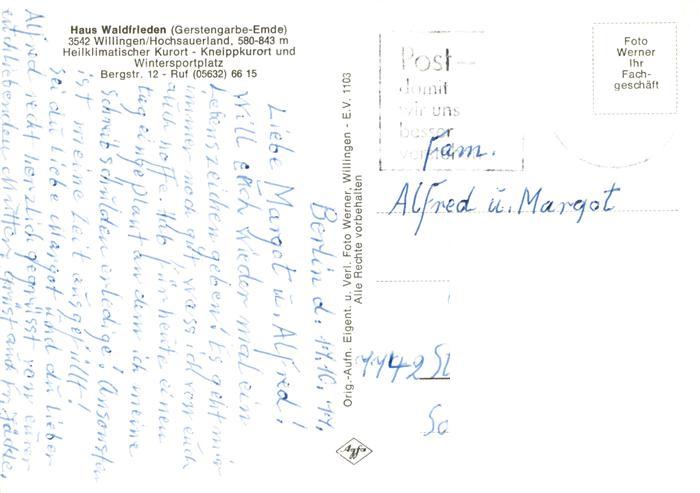 Haus Waldfrieden (Gerstengarbe-Emde)
3542 Willingen/Hochsauerland, 580-843 m
Heilklimatischer Kurort - Kneippkurort und
Wintersportplatz
Bergstr. 12 - Ruf (05632) 66 15
Berlin d. 17.10.77,
Liebe Margot u. Alfred!
Will Euch wieder mal ein
Lebenszeichen geben! Es geht mir
immer noch gut was ich von euch
auch hoffe. Hab für heute einen
tag eingeplant an dem ich meine
Schreibschulden erledige! Ansonsten
ist meine Zeit ausgefüllt!
Sei du liebe Margot und du lieber
Alfred recht herzlich gegrüsst von eurer
euch liebenden
Orig.-Aufn. Eigent. u. Verl. Foto Werner, Willingen - E.V. 1103
Alle Rechte vorbehalten
Agfa
Post-
damit
wir uns
besser
Foto
Werner
Ihr
Fach-
geschäft
Fam.
Alfred u. Margot